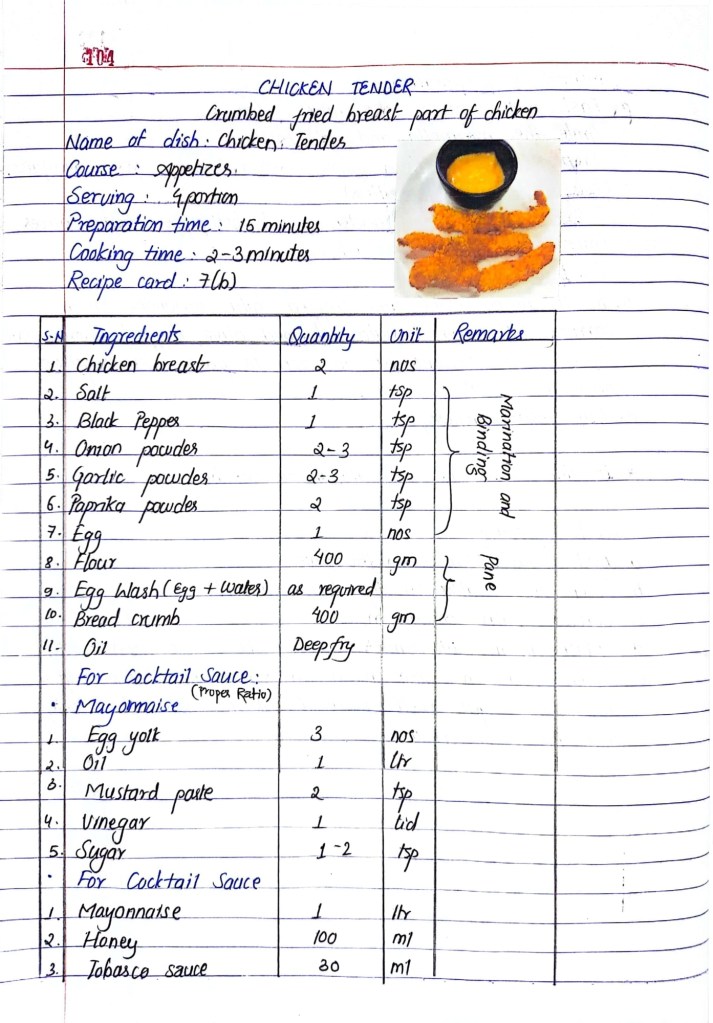 104
CHICKEN TENDER
Crumbed fried breast part of chicken
Name of dish : Chicken Tender
Course : Appetizer
Serving : 4 portion
Preparation time : 15 minutes
Cooking time : 2-3 minutes
Recipe card : 7(b)
S.N Ingredients Quantity Unit Remarks
1. Chicken breast 2 nos
2. Salt 1 tsp
3. Black Pepper 1 tsp
4. Onion powder 2-3 tsp
5. Garlic powder 2-3 tsp
6. Paprika powder 2 tsp
7. Egg 1 nos
Marination and
Binding
8. Flour 400 gm
9. Egg Wash (Egg + Water) as required
10. Bread crumb 400 gm
Pane
11. Oil Deep fry
For Cocktail Sauce :
• Mayonnaise (Proper Ratio)
1. Egg yolk 3 nos
2. Oil 1 ltr
3. Mustard paste 2 tsp
4. Vinegar 1 lid
5. Sugar 1-2 tsp
• For Cocktail Sauce
1. Mayonnaise 1 ltr
2. Honey 100 ml
3. Tobasco sauce 30 ml